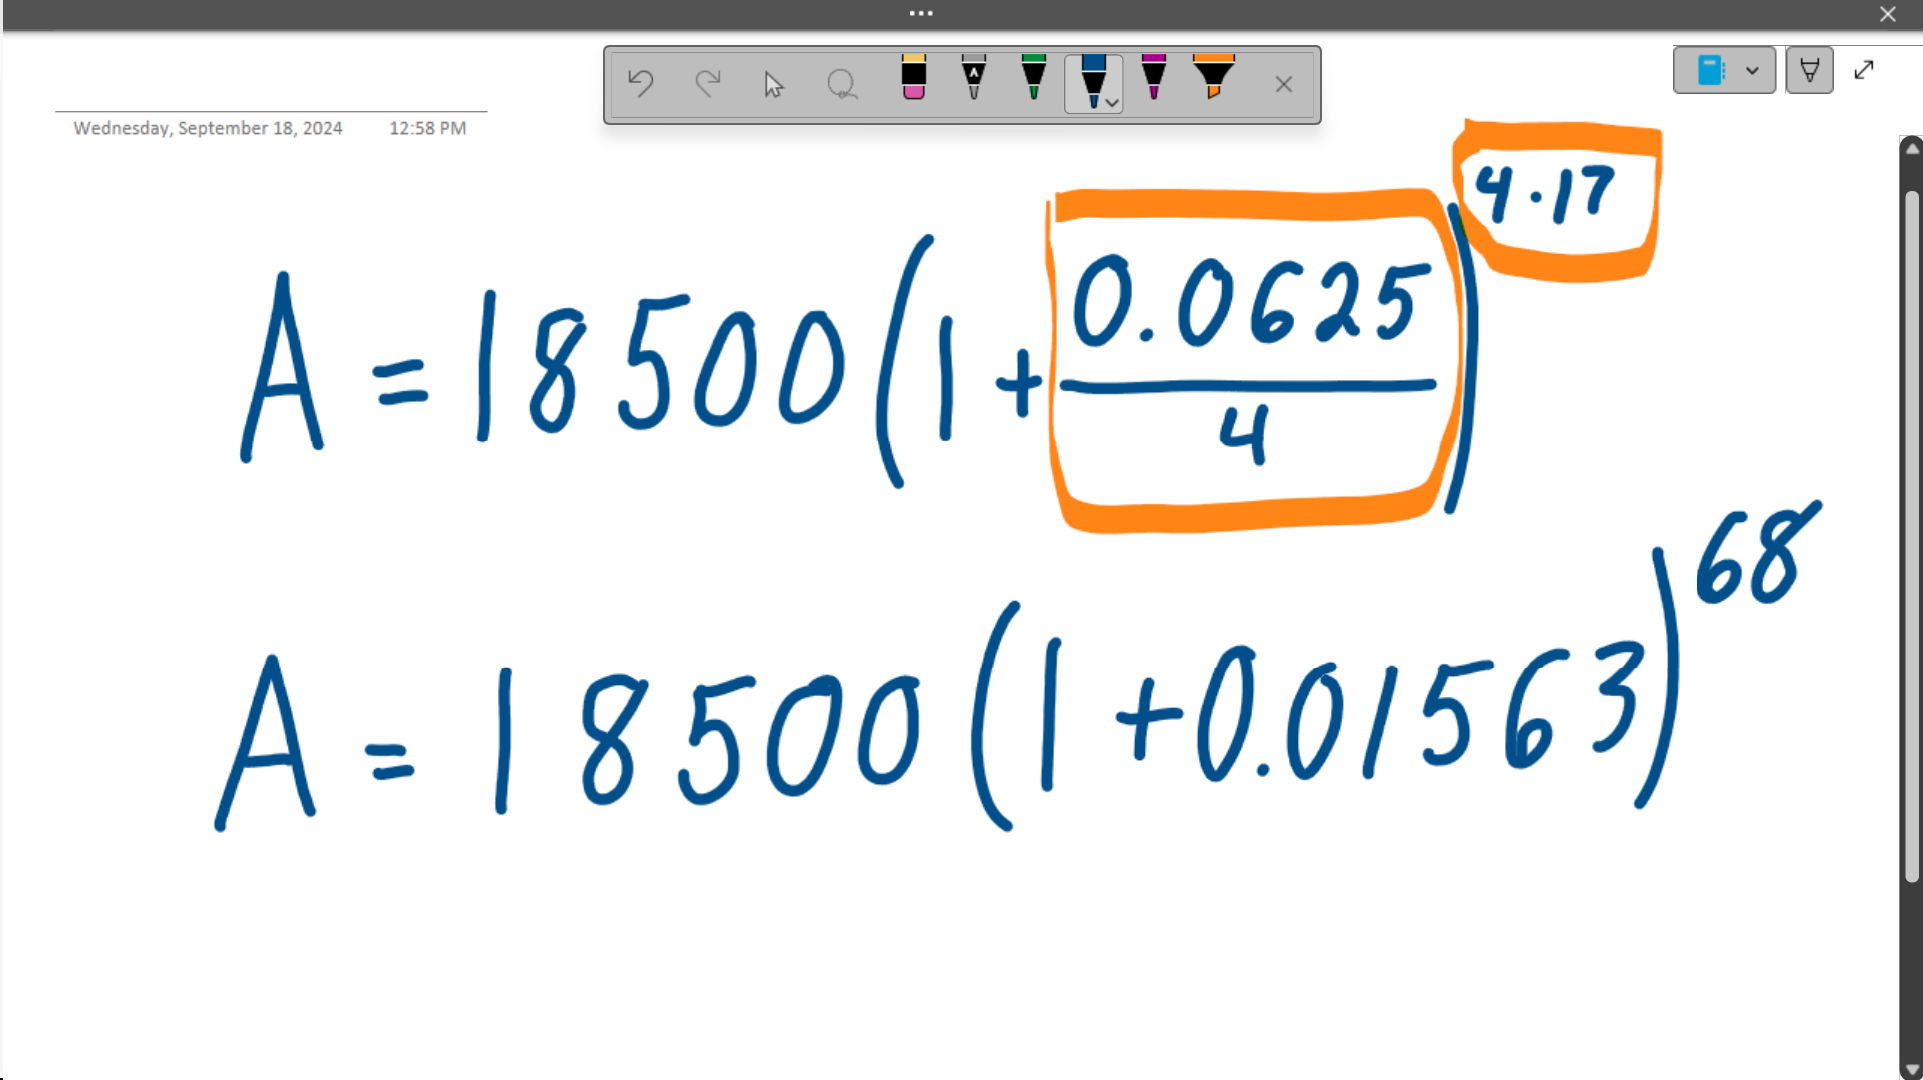 Wednesday, September 18, 2024 12:58 PM
A = 18500(1 + 0.0625/4)^4·17
A = 18500(1 + 0.01563)^68